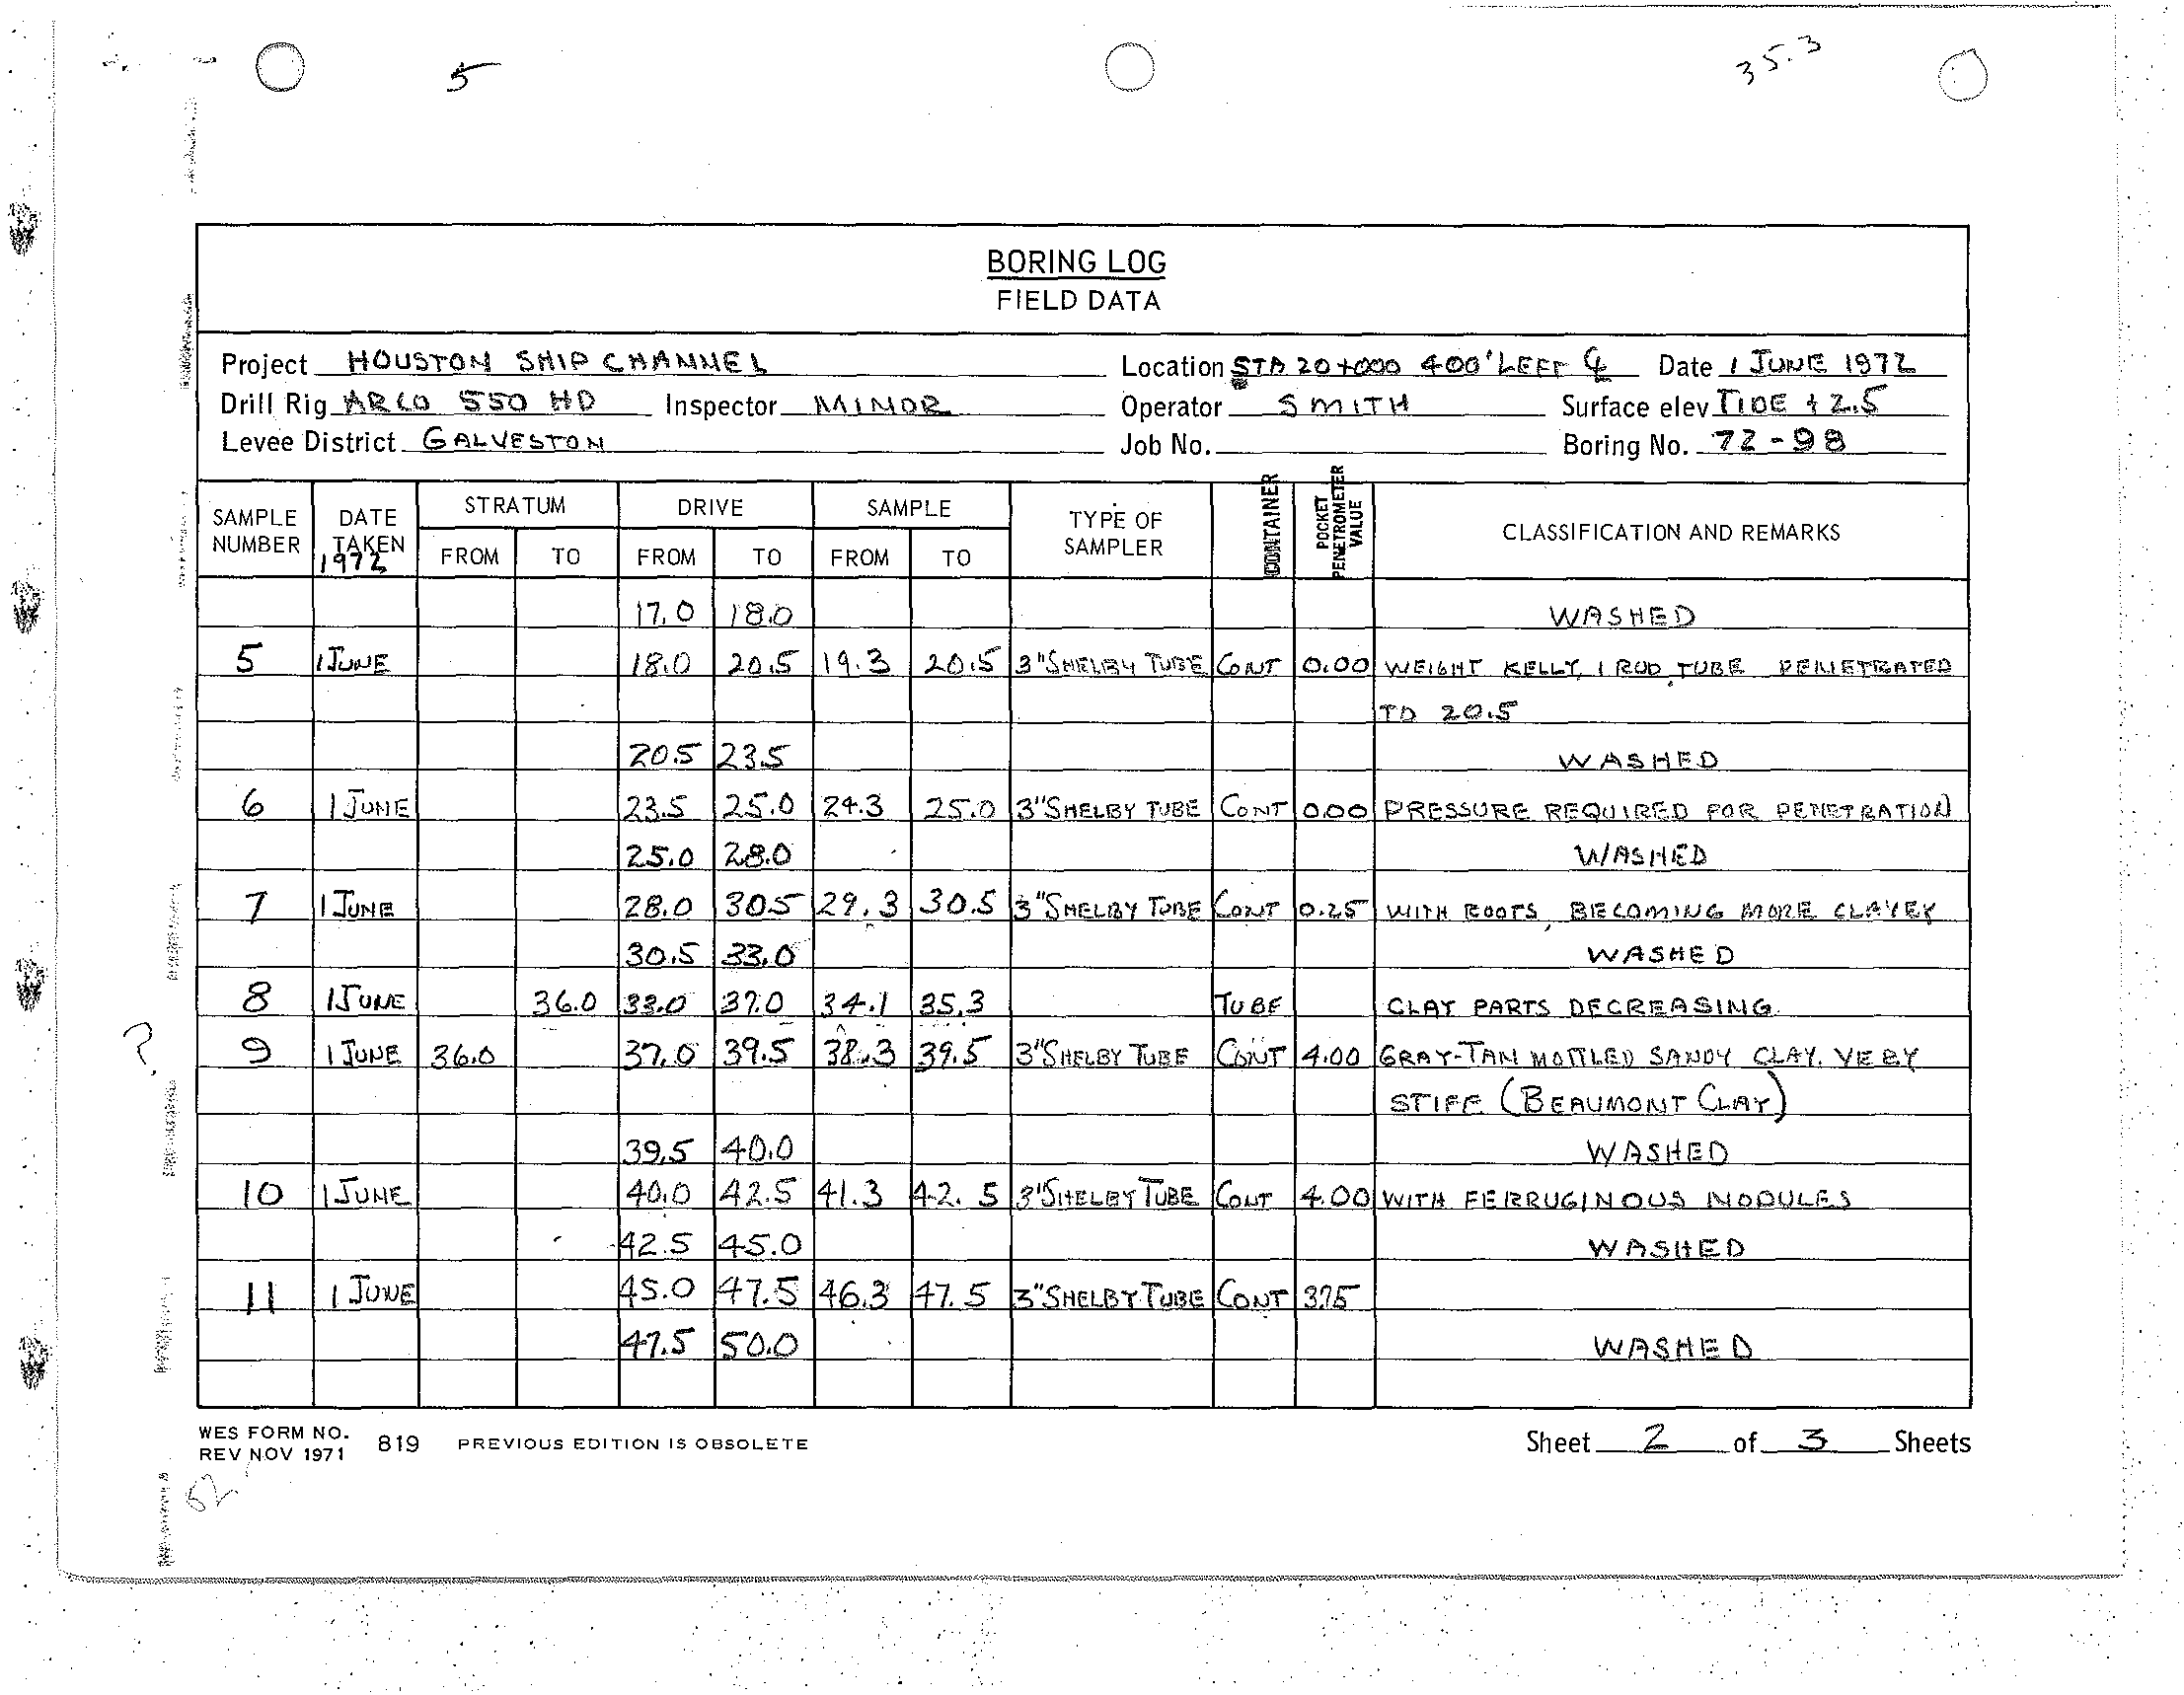 5
35.3
BORING LOG
FIELD DATA
Project HOUSTON SHIP CHANNEL Location STA 20+000 400' LEFT ℄ Date 1 JUNE 1972
Drill Rig ARCO 550 HD Inspector MINOR Operator SMITH Surface elev TIDE + 2.5
Levee District GALVESTON Job No. Boring No. 72-98
SAMPLE NUMBER DATE TAKEN 1972 STRATUM FROM TO DRIVE FROM TO SAMPLE FROM TO TYPE OF SAMPLER CONTAINER POCKET PENETROMETER VALUE CLASSIFICATION AND REMARKS
17.0 18.0 WASHED
5 1 JUNE 18.0 20.5 19.3 20.5 3" SHELBY TUBE CONT 0.00 WEIGHT KELLY, 1 ROD, TUBE PENETRATED
TO 20.5
20.5 23.5 WASHED
6 1 JUNE 23.5 25.0 24.3 25.0 3" SHELBY TUBE CONT 0.00 PRESSURE REQUIRED FOR PENETRATION
25.0 28.0 WASHED
7 1 JUNE 28.0 30.5 29.3 30.5 3" SHELBY TUBE CONT 0.25 WITH ROOTS, BECOMING MORE CLAYEY
30.5 33.0 WASHED
8 1 JUNE 36.0 33.0 37.0 34.1 35.3 TUBE CLAY PARTS DECREASING.
? 9 1 JUNE 36.0 37.0 39.5 38.3 39.5 3" SHELBY TUBE CONT 4.00 GRAY-TAN MOTTLED SANDY CLAY. VERY
STIFF (BEAUMONT CLAY)
39.5 40.0 WASHED
10 1 JUNE 40.0 42.5 41.3 42.5 3" SHELBY TUBE CONT 4.00 WITH FERRUGINOUS NODULES
42.5 45.0 WASHED
11 1 JUNE 45.0 47.5 46.3 47.5 3" SHELBY TUBE CONT 3.75
47.5 50.0 WASHED
WES FORM NO. 819 PREVIOUS EDITION IS OBSOLETE Sheet 2 of 3 Sheets
REV NOV 1971
52